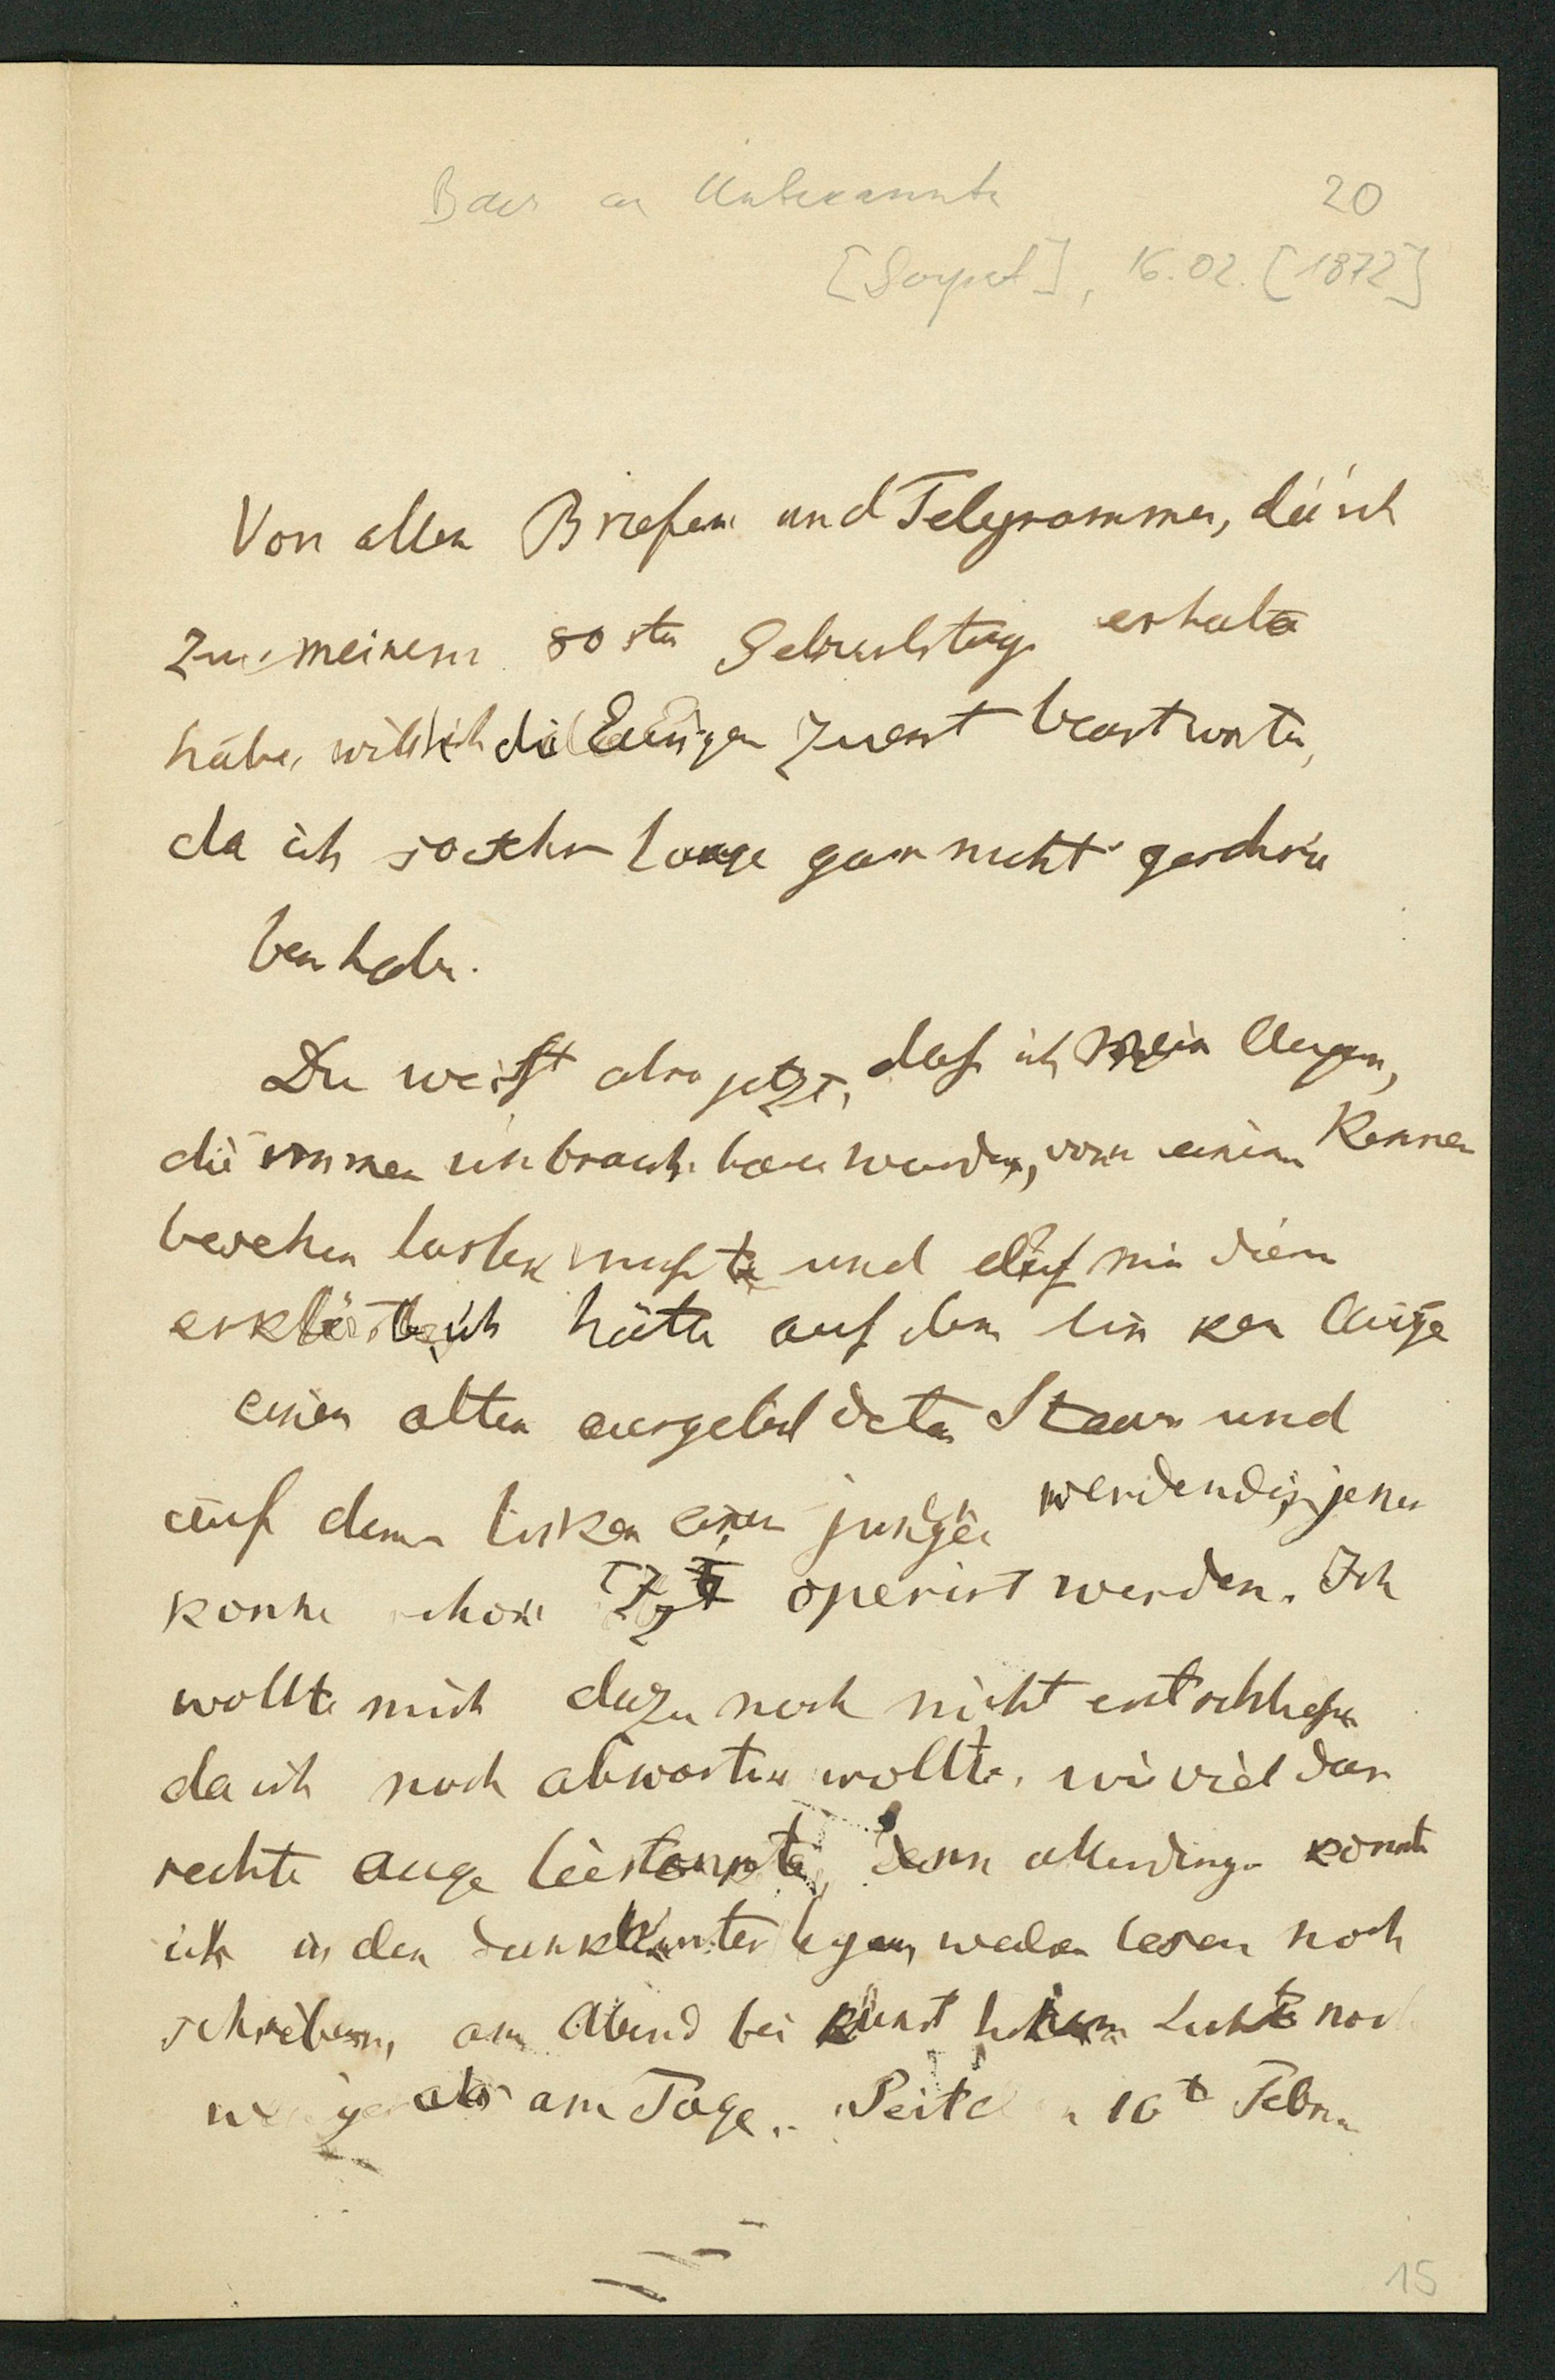 Baer an Unbekannte 20
[Dorpat], 16.02. [1872]
Von allen Briefen und Telegrammen, die ich
zu meinem 80sten Geburtstage erhalten
habe, will ich die Eurigen zuerst beantworten,
da ich so sehr lange gar nicht geschrie
ben habe.
Du weißt also jetzt, daß ich mein Augen,
die immer unbrauchbarer wurden, von einem Kenner
besehen lassen mußte und daß mir dieser
erklärte, ich hätte auf dem linken Auge
einen alten ausgebildeten Staar und
auf dem linken einen jungen werdenden, jener
könne schon jetzt operirt werden. Ich
wollte mich dazu noch nicht entschließen
da ich noch abwarten wollte, wie viel das
rechte Auge leisten, denn allerdings konnte
ich in den dunklen weder lesen noch
schreiben, am Abend bei künstlichem Licht noch
weniger als am Tage. Seit 16t Febru
15